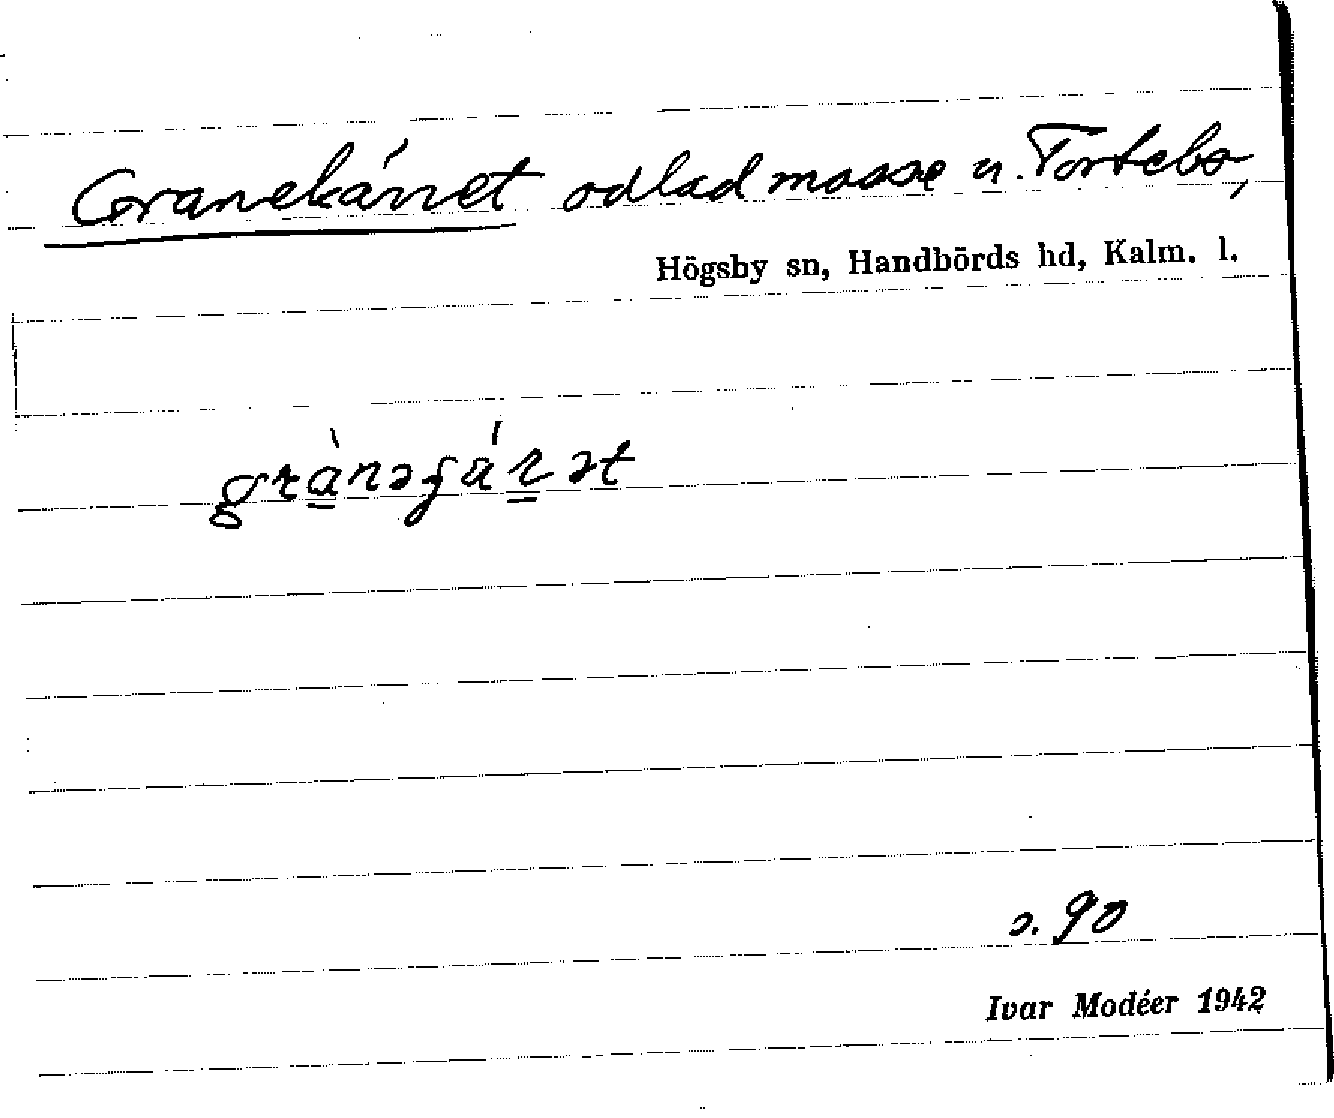 Granekärret odlad mosse u. Tortebo,
Högsby sn, Handbörds hd, Kalm. l.
grànəʃárət
s. 90
Ivar Modéer 1942